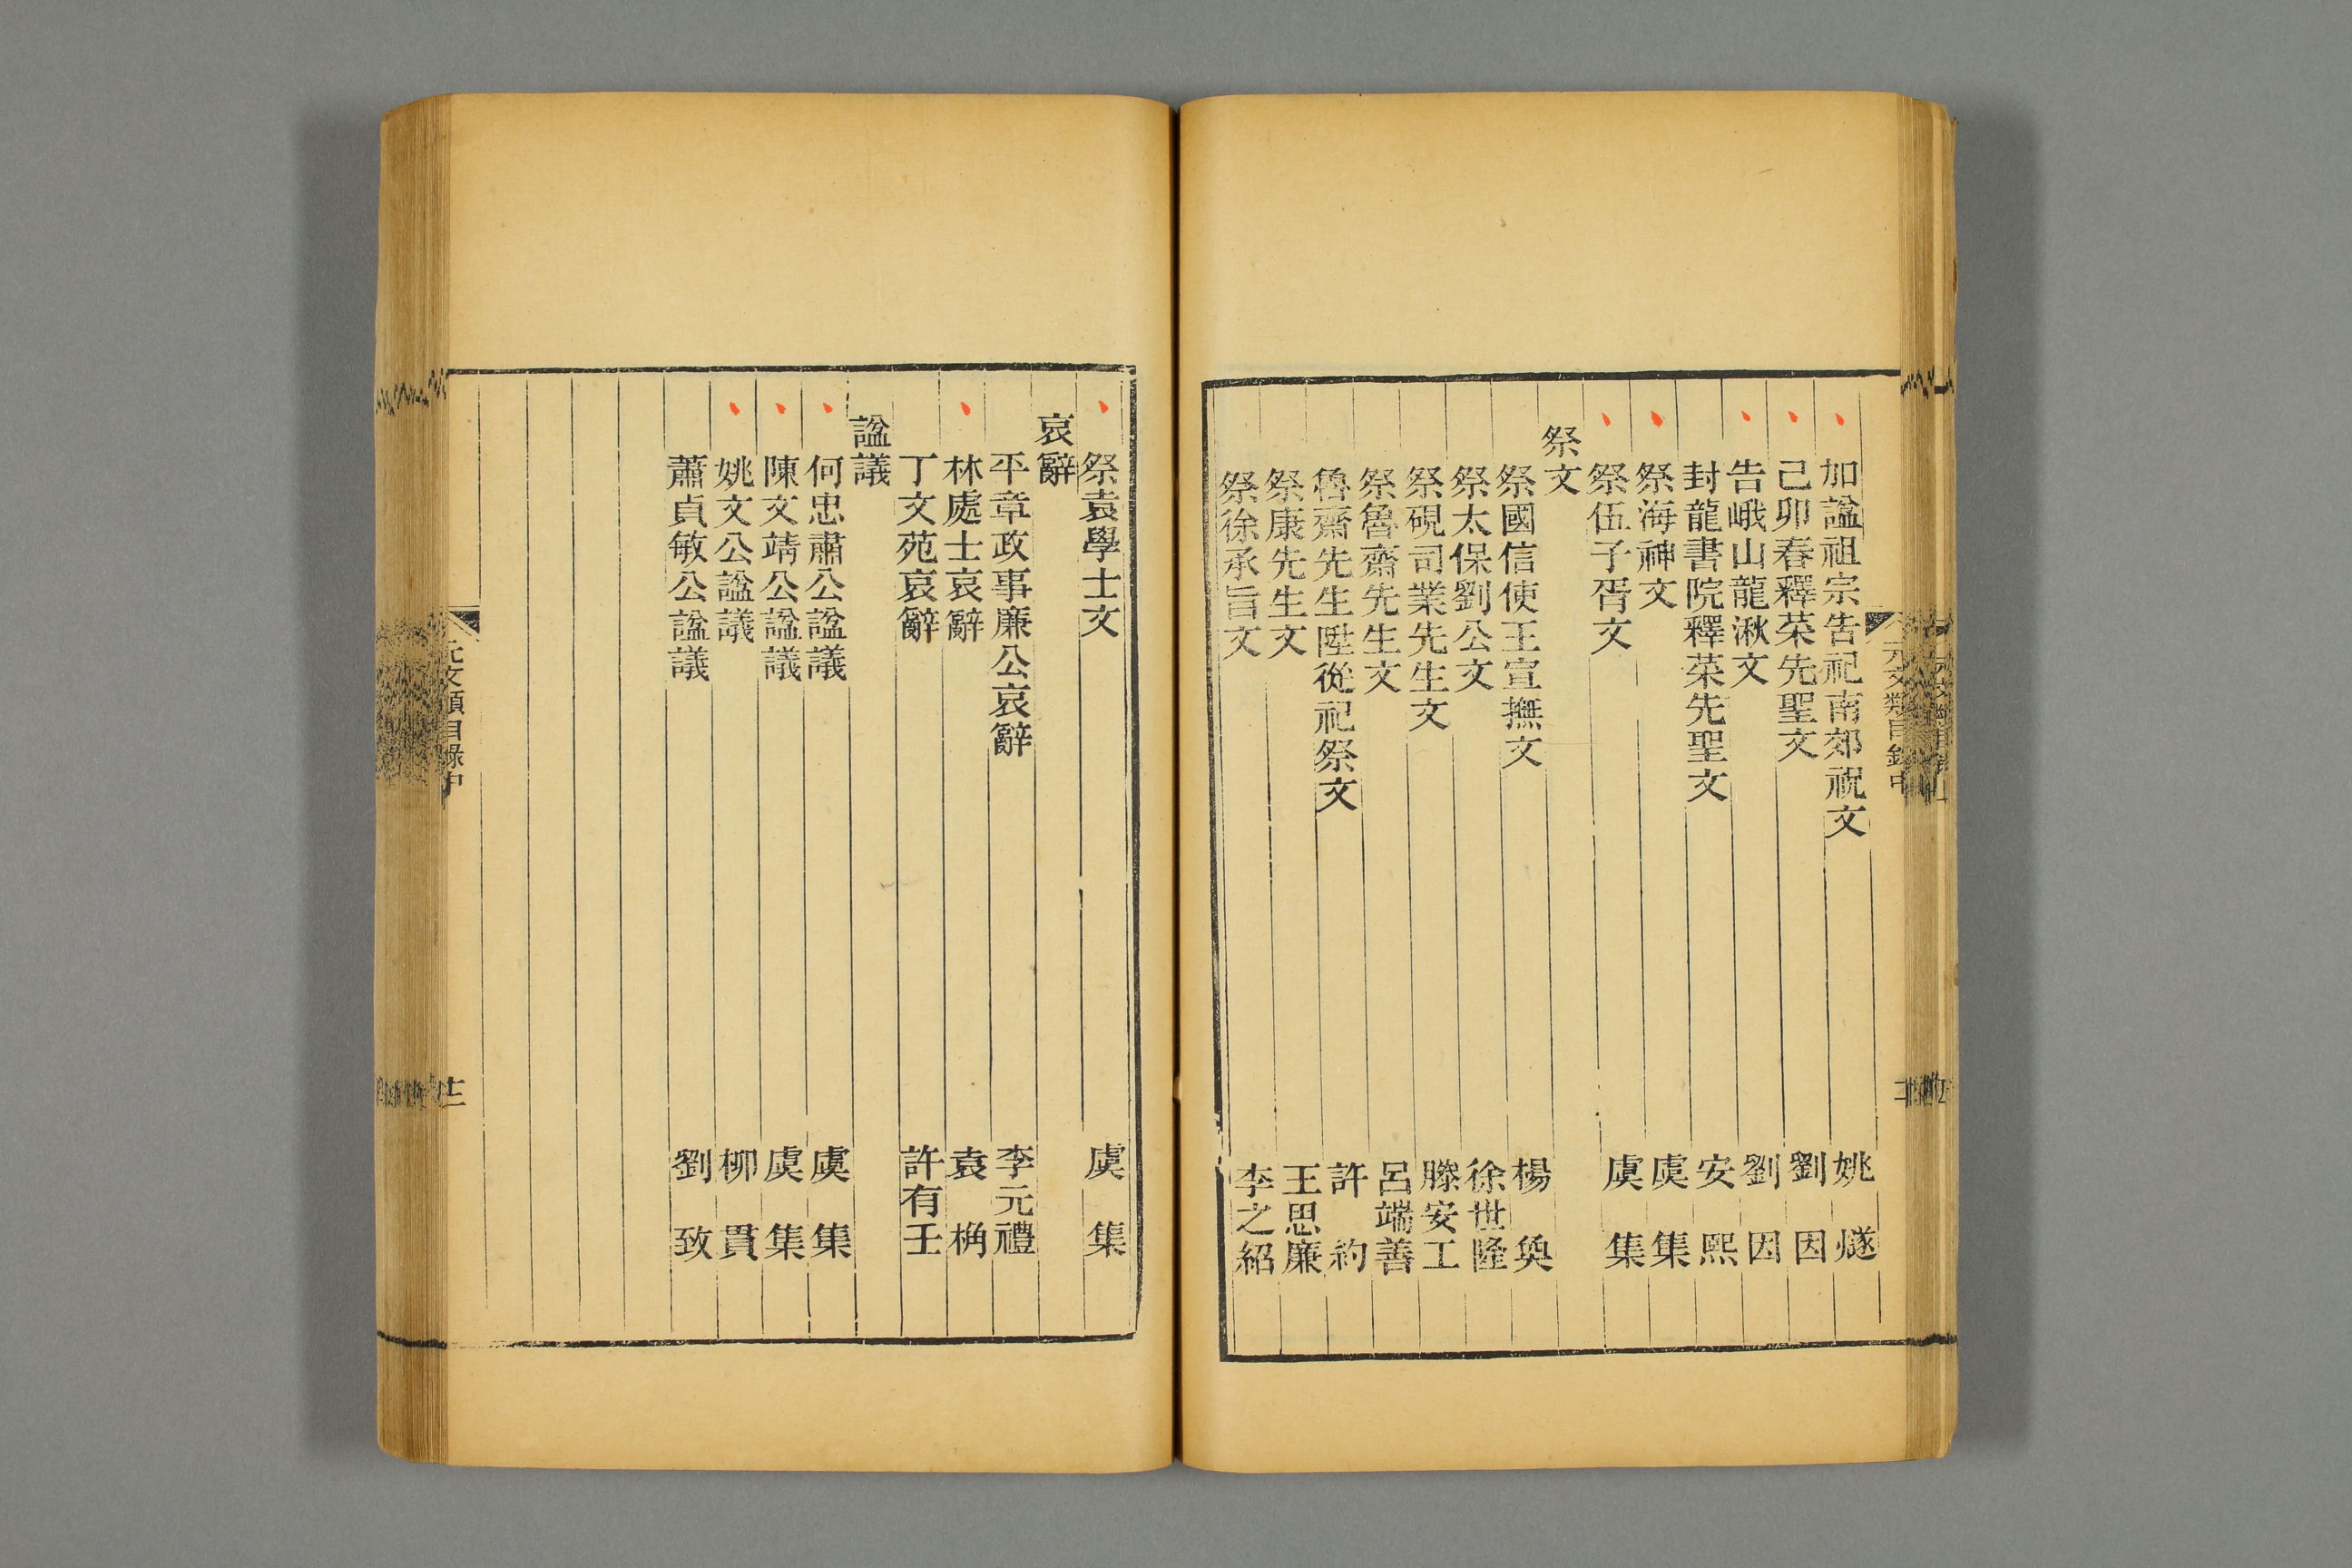 加諡祖宗告祀南郊祝文 姚燧
己卯春釋菜先聖文 劉因
告峨山龍湫文 劉因
封龍書院釋菜先聖文 安熙
祭海神文 虞集
祭伍子胥文 虞集
祭文
祭國信使王宣撫文 楊奐
祭太保劉公文 徐世隆
祭硯司業先生文 滕安上
祭魯齋先生文 呂端善
魯齋先生陞從祀祭文 許約
祭康先生文 王思廉
祭徐承旨文 李之紹
元文類目錄中
祭袁學士文 虞集
哀辭
平章政事廉公哀辭 李元禮
林處士哀辭 袁桷
丁文苑哀辭 許有壬
諡議
何忠肅公諡議 虞集
陳文靖公諡議 虞集
姚文公諡議 柳貫
蕭貞敏公諡議 劉致
元文類目錄中
十二